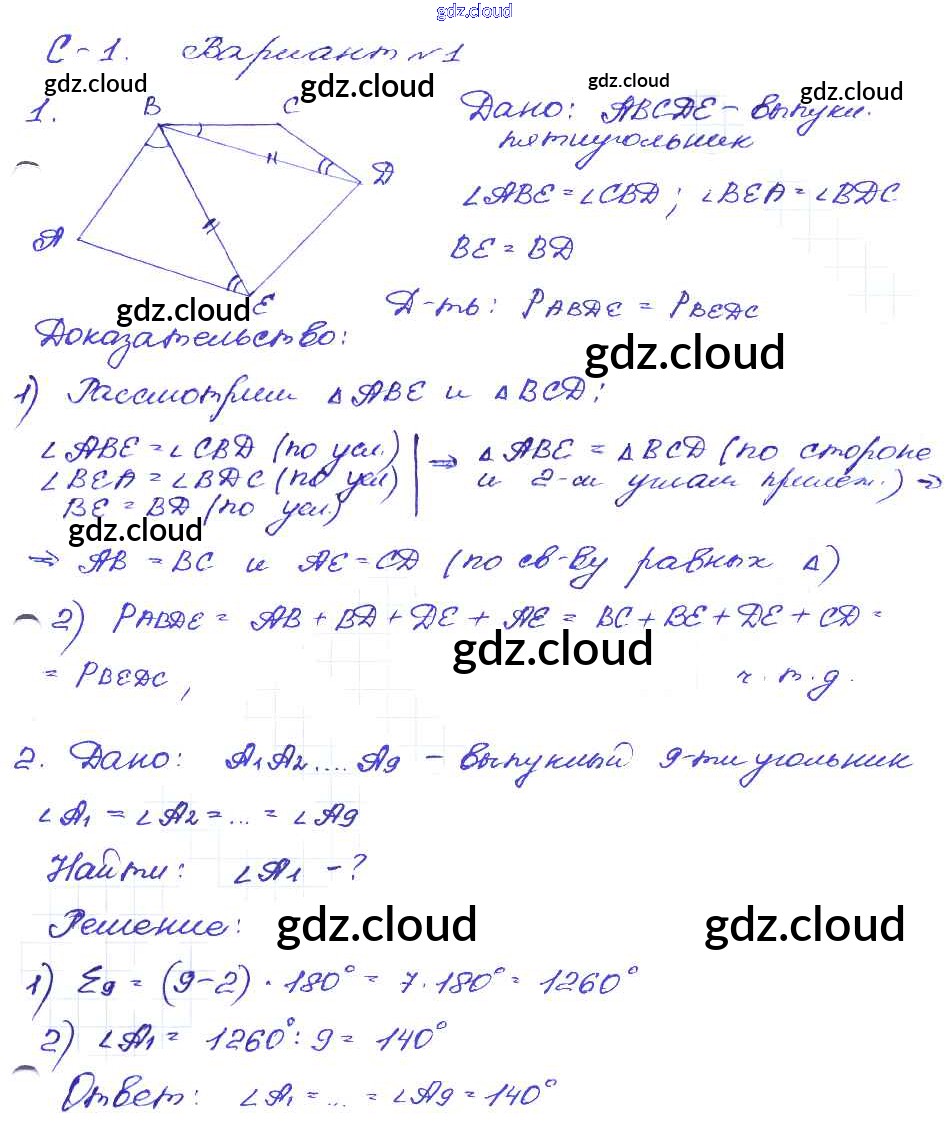 gdz.cloud
С-1. Вариант №1
gdz.cloud gdz.cloud gdz.cloud gdz.cloud
1.
B C
D
A
E
Дано: ABCDE - выпукл.
пятиугольник
∠ABE = ∠CBD ; ∠BEA = ∠BDC
BE = BD
gdz.cloud
Д-ть: PABDE = PBEDC
Доказательство:
gdz.cloud
1) Рассмотрим △ABE и △BCD;
∠ABE = ∠CBD (по усл.)
∠BEA = ∠BDC (по усл)
BE = BD (по усл.)
⇒ △ABE = △BCD (по стороне
и 2-м углам прилеж.) ⇒
gdz.cloud
⇒ AB = BC и AE = CD (по св-ву равных △)
2) PABDE = AB + BD + DE + AE = BC + BE + DE + CD =
gdz.cloud
= PBEDC, ч.т.д.
2. Дано: A1A2....A9 - выпуклый 9-тиугольник
∠A1 = ∠A2 = ... = ∠A9
Найти: ∠A1 - ?
Решение:
gdz.cloud gdz.cloud
1) Σ9 = (9-2) · 180° = 7·180° = 1260°
2) ∠A1 = 1260° : 9 = 140°
Ответ: ∠A1 = ... = ∠A9 = 140°